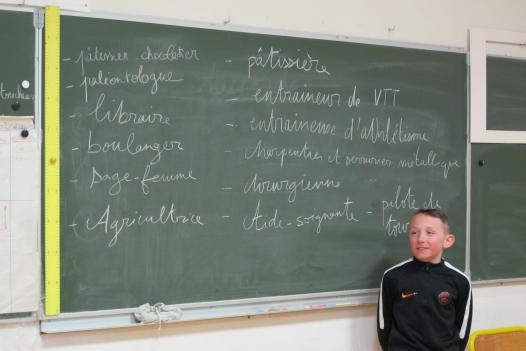 - pâtissier chocolatier
- paléontologue
- libraire
- boulanger
- sage-femme
- Agricultrice
- pâtissière
- entraineur de VTT
- entraineuse d'athlétisme
- charpentier et serrurier métallique
- chirurgienne
- Aide-soignante - pilote de